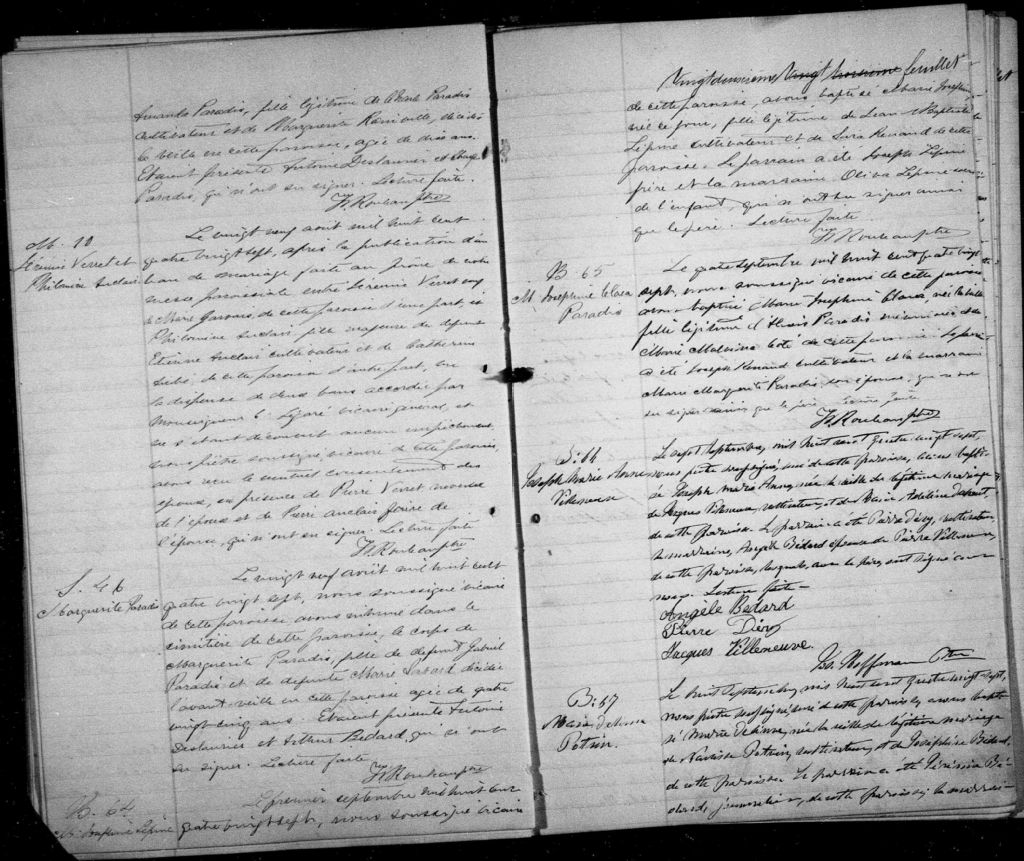 Amanda Paradis, fille légitime de Charle Paradis
cultivateur et de Marguerite Renville, décédée
la veille en cette paroisse, agée de dix ans.
Etaient présents Antoine Deslaurier et
Paradis, qui n'ont su signer. Lecture faite.
M. 10
Jérémie Verret et
Philomène Auclair
Le vingt neuf août mil huit cent
quatre vingt sept, après la publication d'un
ban de mariage faite au prône de notre
messe paroissiale entre Jérémie Verret veuf
de Marie Garneau, de cette paroisse d'une part, et
Philomène Auclair fille majeure de defunt
Etienne Auclair cultivateur et de Catherine
de cette paroisse d'autre part, vu
la dispense de deux bans accordée par
Monseigneur C. Légaré vicaire général, et
ne s'étant découvert aucun empêchement,
nous prêtre soussigné vicaire de cette paroisse,
avons reçu le mutuel consentement des
époux, en présence de Pierre Verret
de l'époux et de Pierre Auclair frère de
l'épouse, qui n'ont su signer. Lecture faite
S. 46
Marguerite Paradis
Le vingt neuf août mil huit cent
quatre vingt sept, nous soussigné vicaire
de cette paroisse avons inhumé dans le
cimetière de cette paroisse, le corps de
Marguerite Paradis, fille de defunt Gabriel
Paradis et de defunte Marie décédée
l'avant-veille en cette paroisse agée de quatre
vingt cinq ans. Etaient présents Antoine
Deslaurier et Arthur Bédard, qui n'ont
su signer. Lecture faite
B. 64
M. Joséphine Lépine
Le premier septembre mil huit cent
quatre vingt sept, nous soussigné vicaire
Vingtdeuxième Vingt troisième feuillet
de cette paroisse, avons baptisé Marie Joséphine
née ce jour, fille légitime de Jean Baptiste
Lépine cultivateur et de Sara Renaud de cette
paroisse. Le parrain a été Joseph Lépine
frère et la marraine Oliva Lépine soeur
de l'enfant, qui n'ont su signer ainsi
que le père. Lecture faite
B 65
M. Joséphine Clara
Paradis
Le quatre septembre mil huit cent quatre vingt
sept, nous soussigné vicaire de cette paroisse
avons baptisé Marie Joséphine Clara, née la veille
fille légitime d'Alexis Paradis et de
Marie Malvina Coté de cette paroisse. Le parrain
a été Joseph Renaud cultivateur et la marraine
Marie Marguerite Paradis, son épouse, qui n'ont
su signer ainsi que le père. Lecture faite
B: 66
Joseph Marie Anne
Villeneuve
Le sept septembre, mil huit cent quatre vingt sept,
nous prêtre soussigné, curé de cette paroisse, avons baptisé
Joseph Marie Anne, née la veille du légitime mariage
de Jacques Villeneuve, cultivateur, et de Marie Adeline
de cette paroisse. Le parrain a été Pierre Déry, cultivateur,
la marraine, Angèle Bédard épouse de Pierre Villeneuve,
de cette paroisse, lesquels, avec le père, ont signé avec
nous. Lecture faite
Angèle Bedard
Pierre Déry
Jacques Villeneuve.
Jos. Hoffman Ptre
B: 67
Marie
Potvin.
Le huit septembre mil huit cent quatre vingt sept,
nous prêtre soussigné, curé de cette paroisse, avons baptisé
Marie née la veille du légitime mariage
de Potvin, cultivateur, et de Joséphine Bédard,
de cette paroisse. Le parrain a été
journalier, de cette paroisse; la marrai-